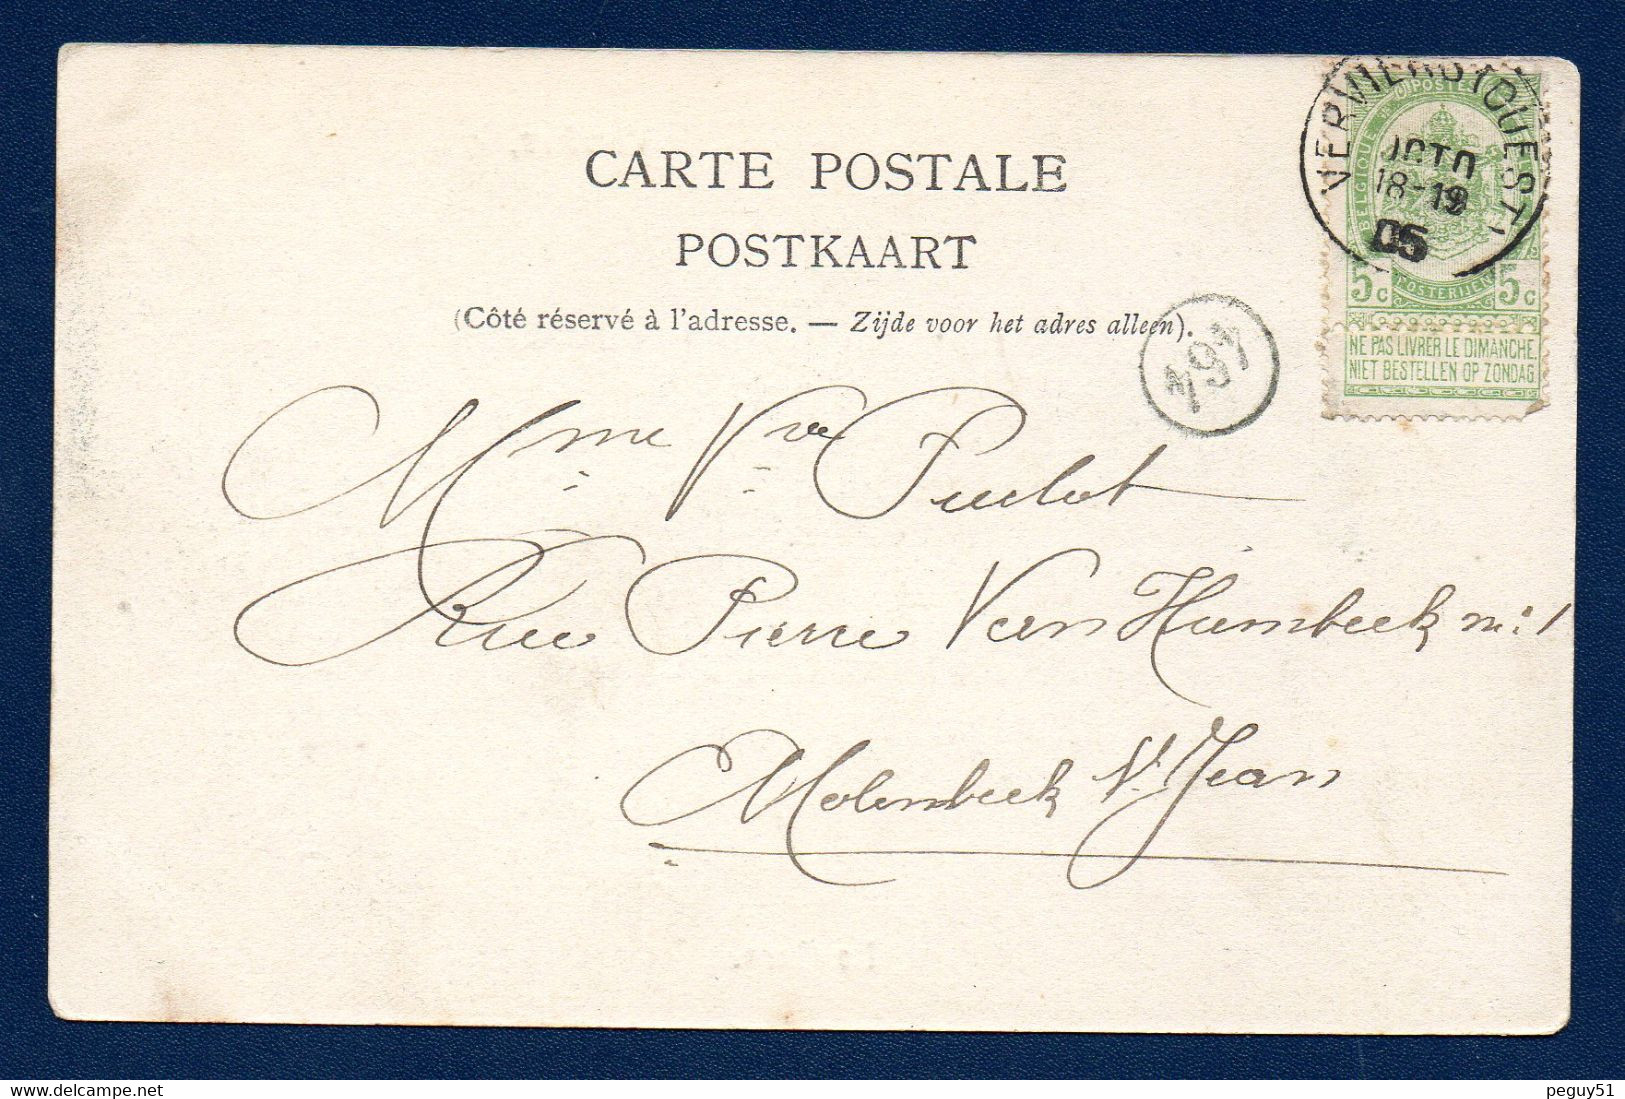 CARTE POSTALE
POSTKAART
(Côté réservé à l'adresse. — Zijde voor het adres alleen).
VERVIERS (OUEST)
18-19
05
POSTES
BELGIQUE
5c POSTERIJEN 5c
NE PAS LIVRER LE DIMANCHE.
NIET BESTELLEN OP ZONDAG
Mme Vve
Rue Pierre Van Humbeek no: 1
Molenbeek St. Jean
peguy51